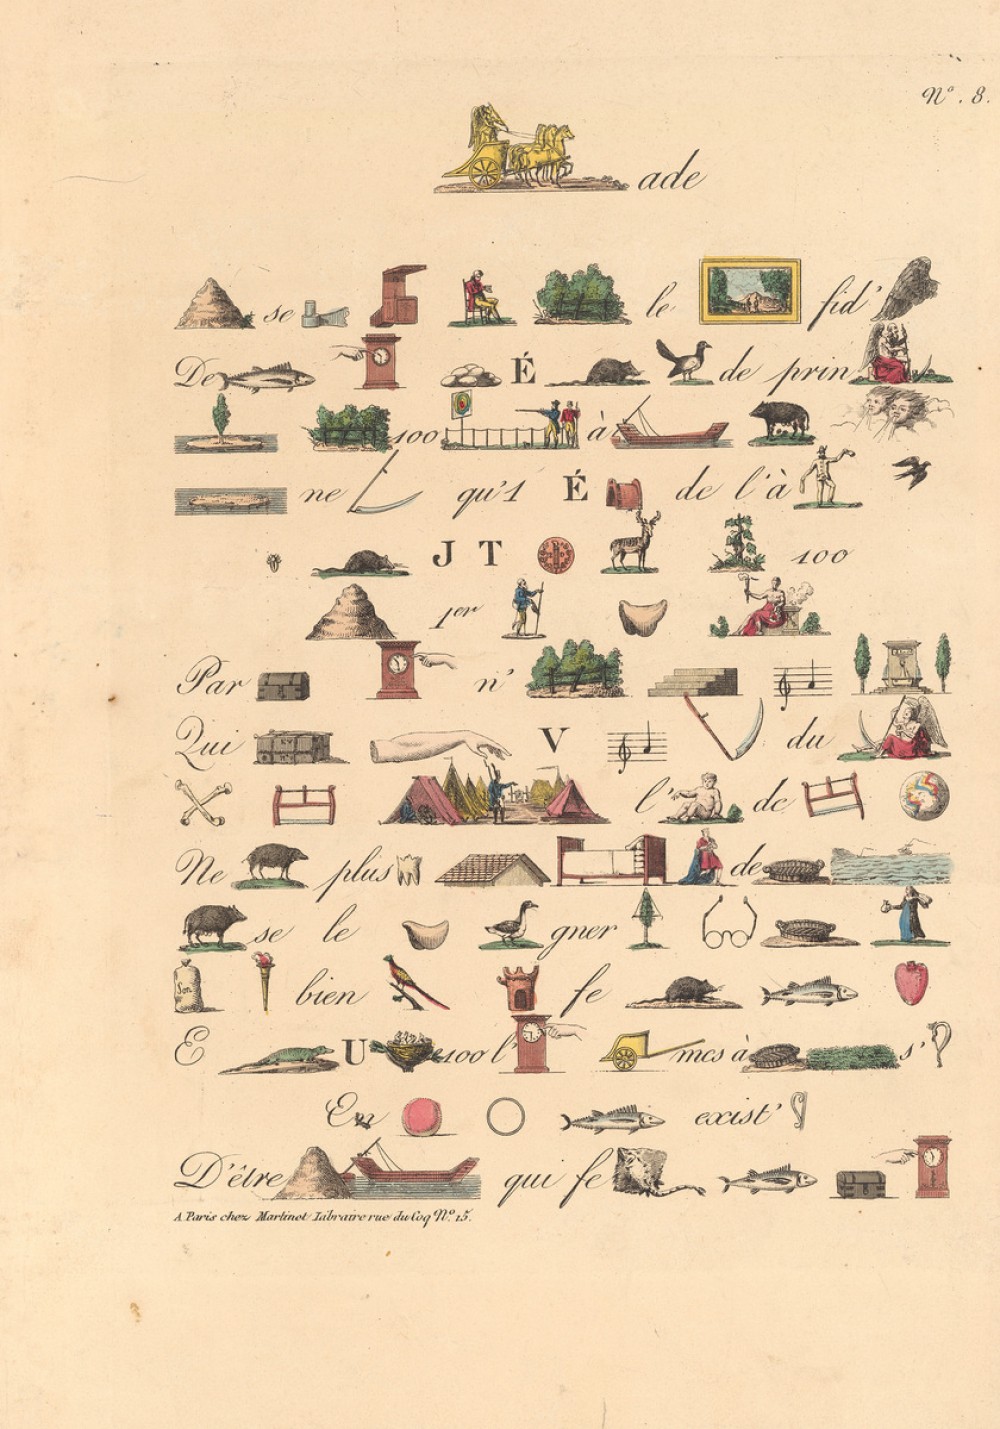 Nº. 8.
ade
se le fid'
De É de prin
100 à
ne qu'1 É de l'à
J T 100
1er
Par n'
Qui V du
l' de
Ne plus de
se le gner
Son bien fe
E U 100 l' mes à s'
En exist'
D'être qui fe
A Paris chez Martinet Libraire rue du Coq Nº. 15.